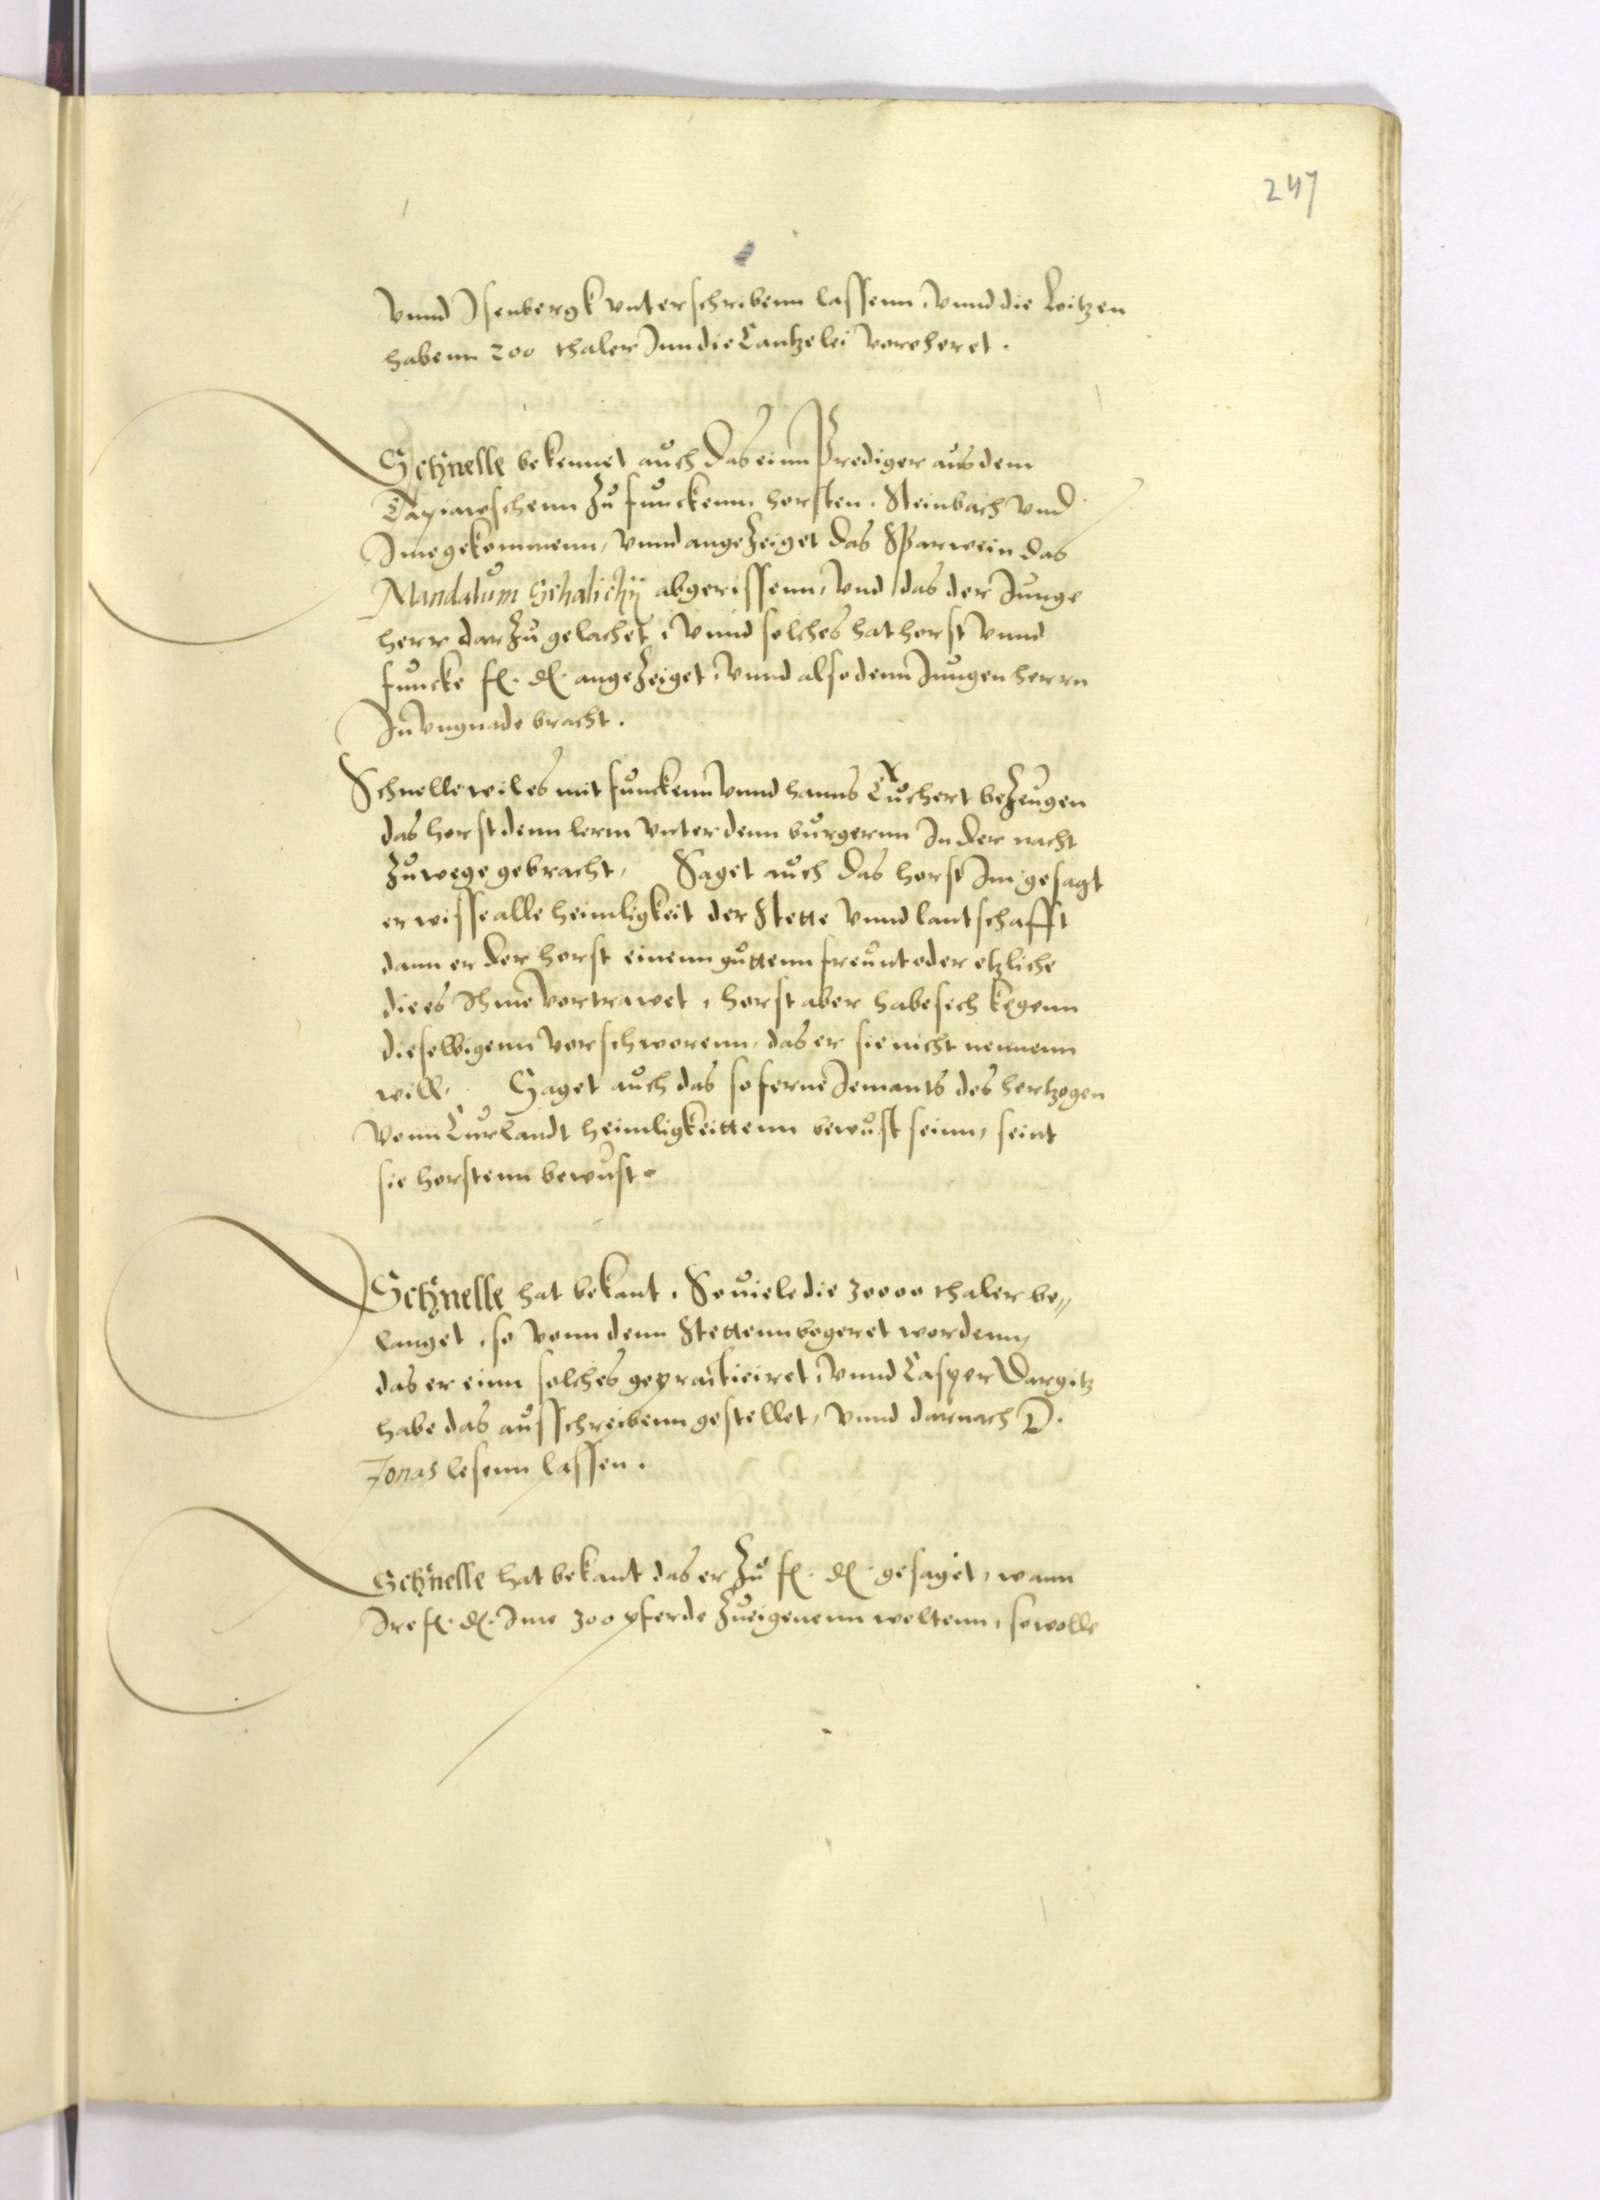 247
vnnd Isenbergk vnterschribenn lassenn, vnnd die Loitzen
habenn 200 thaler Inn die Cantzelei voreheret.
Schnelle bekennet auch das einn Prediger aus dem
Tapiawschenn zu Funckenn, Horsten, Steinbach vnd
Ime gekommenn, vnnd angezeiget das Sparwein das
Mandatum Schalichij abgerissenn, vnd das der Junge
herr darzu gelachet, vnnd solches hat Horst vnnd
Funcke f. d. angezeiget, vnnd also denn Jungen herrn
In vngnade bracht.
Schnelle wil es mit Funckenn vnnd Hanns Tuchert bezeugen
das Horst denn lerm vnter denn burgernn In der nacht
zuwege gebracht, Saget auch das Horst Im gesagt
er wisse alle heimligkeit der Stette vnnd lantschafft
dann er der Horst einenn guttenn freunt oder etzliche
die es Ihme vortrawet, Horst aber habe sich kegenn
dieselbigenn vorschworenn, das er sie nicht nennenn
will, Saget auch das soferne Jemants des hertzogen
vonn Curlandt heimligkeittenn bewust seinn, seint
sie Horstenn bewust.
Schnelle hat bekant, Souiele die 30000 thaler be„
langet, so vonn denn Stettenn begeret wordenn,
das er einn solches gepractisiret, vnnd Casper Dargitz
habe das ausschreibenn gestellet, vnnd darnach D.
Jonas lesenn lassen.
Schnelle hat bekant das er zu f. d. gesaget, wann
Ire f. d. Ime 300 pferde zueigenenn woltenn, so wolle